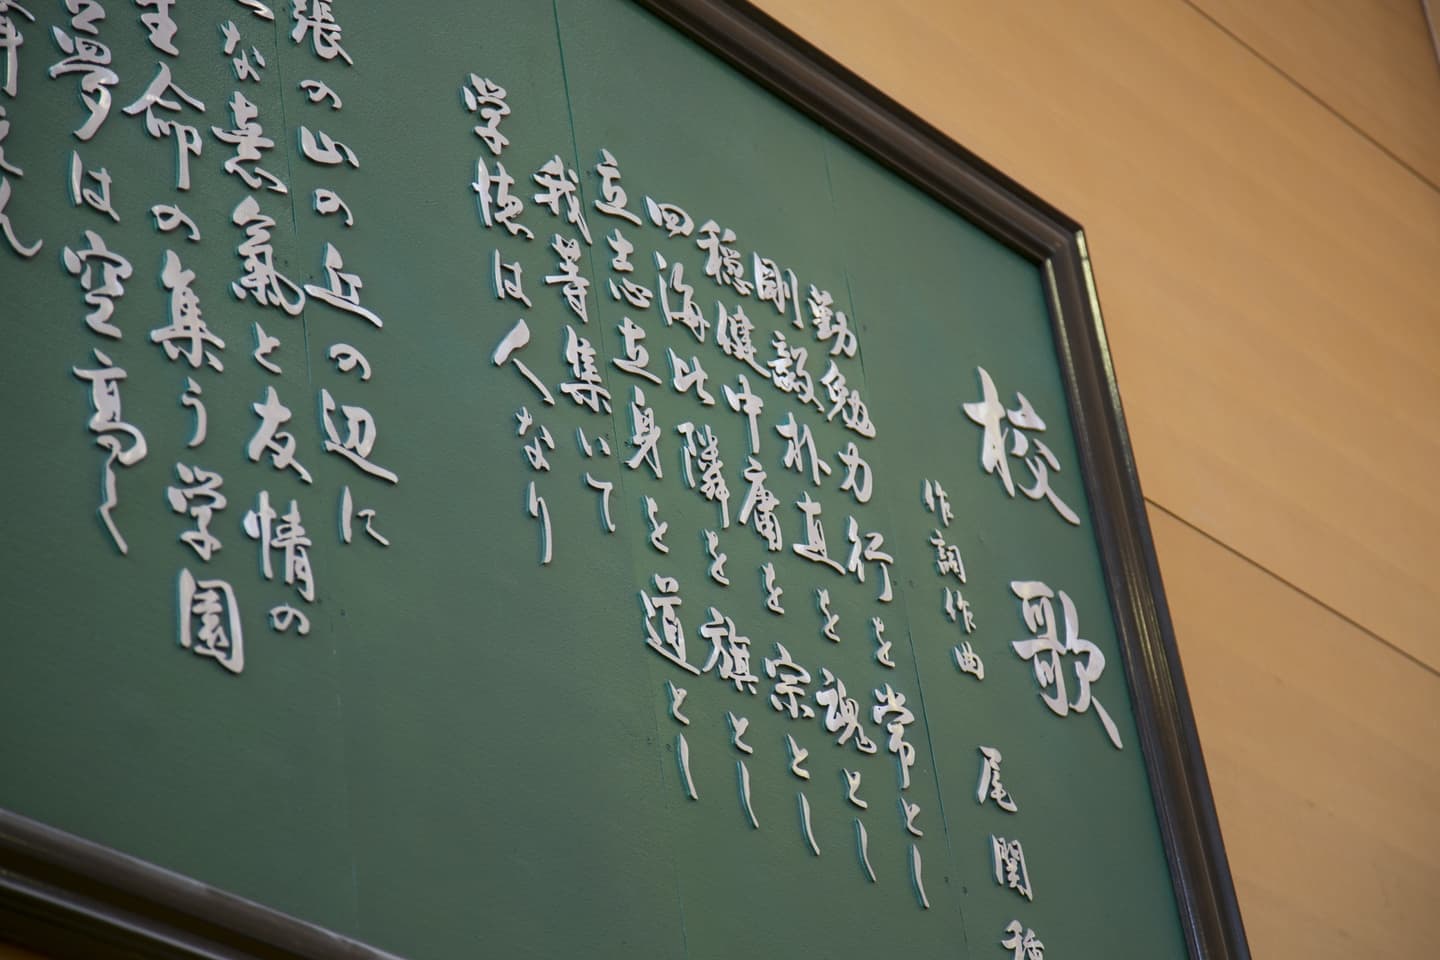 校歌
作詞作曲 尾関
勤勉力行を常とし
剛毅朴直を魂とし
穏健中庸を宗とし
四海比隣を旗とし
立志立身を道とし
我等集いて
学徳は人なり
張の山の丘の辺に
な意氣と友情の
生命の集う学園
夢は空高く